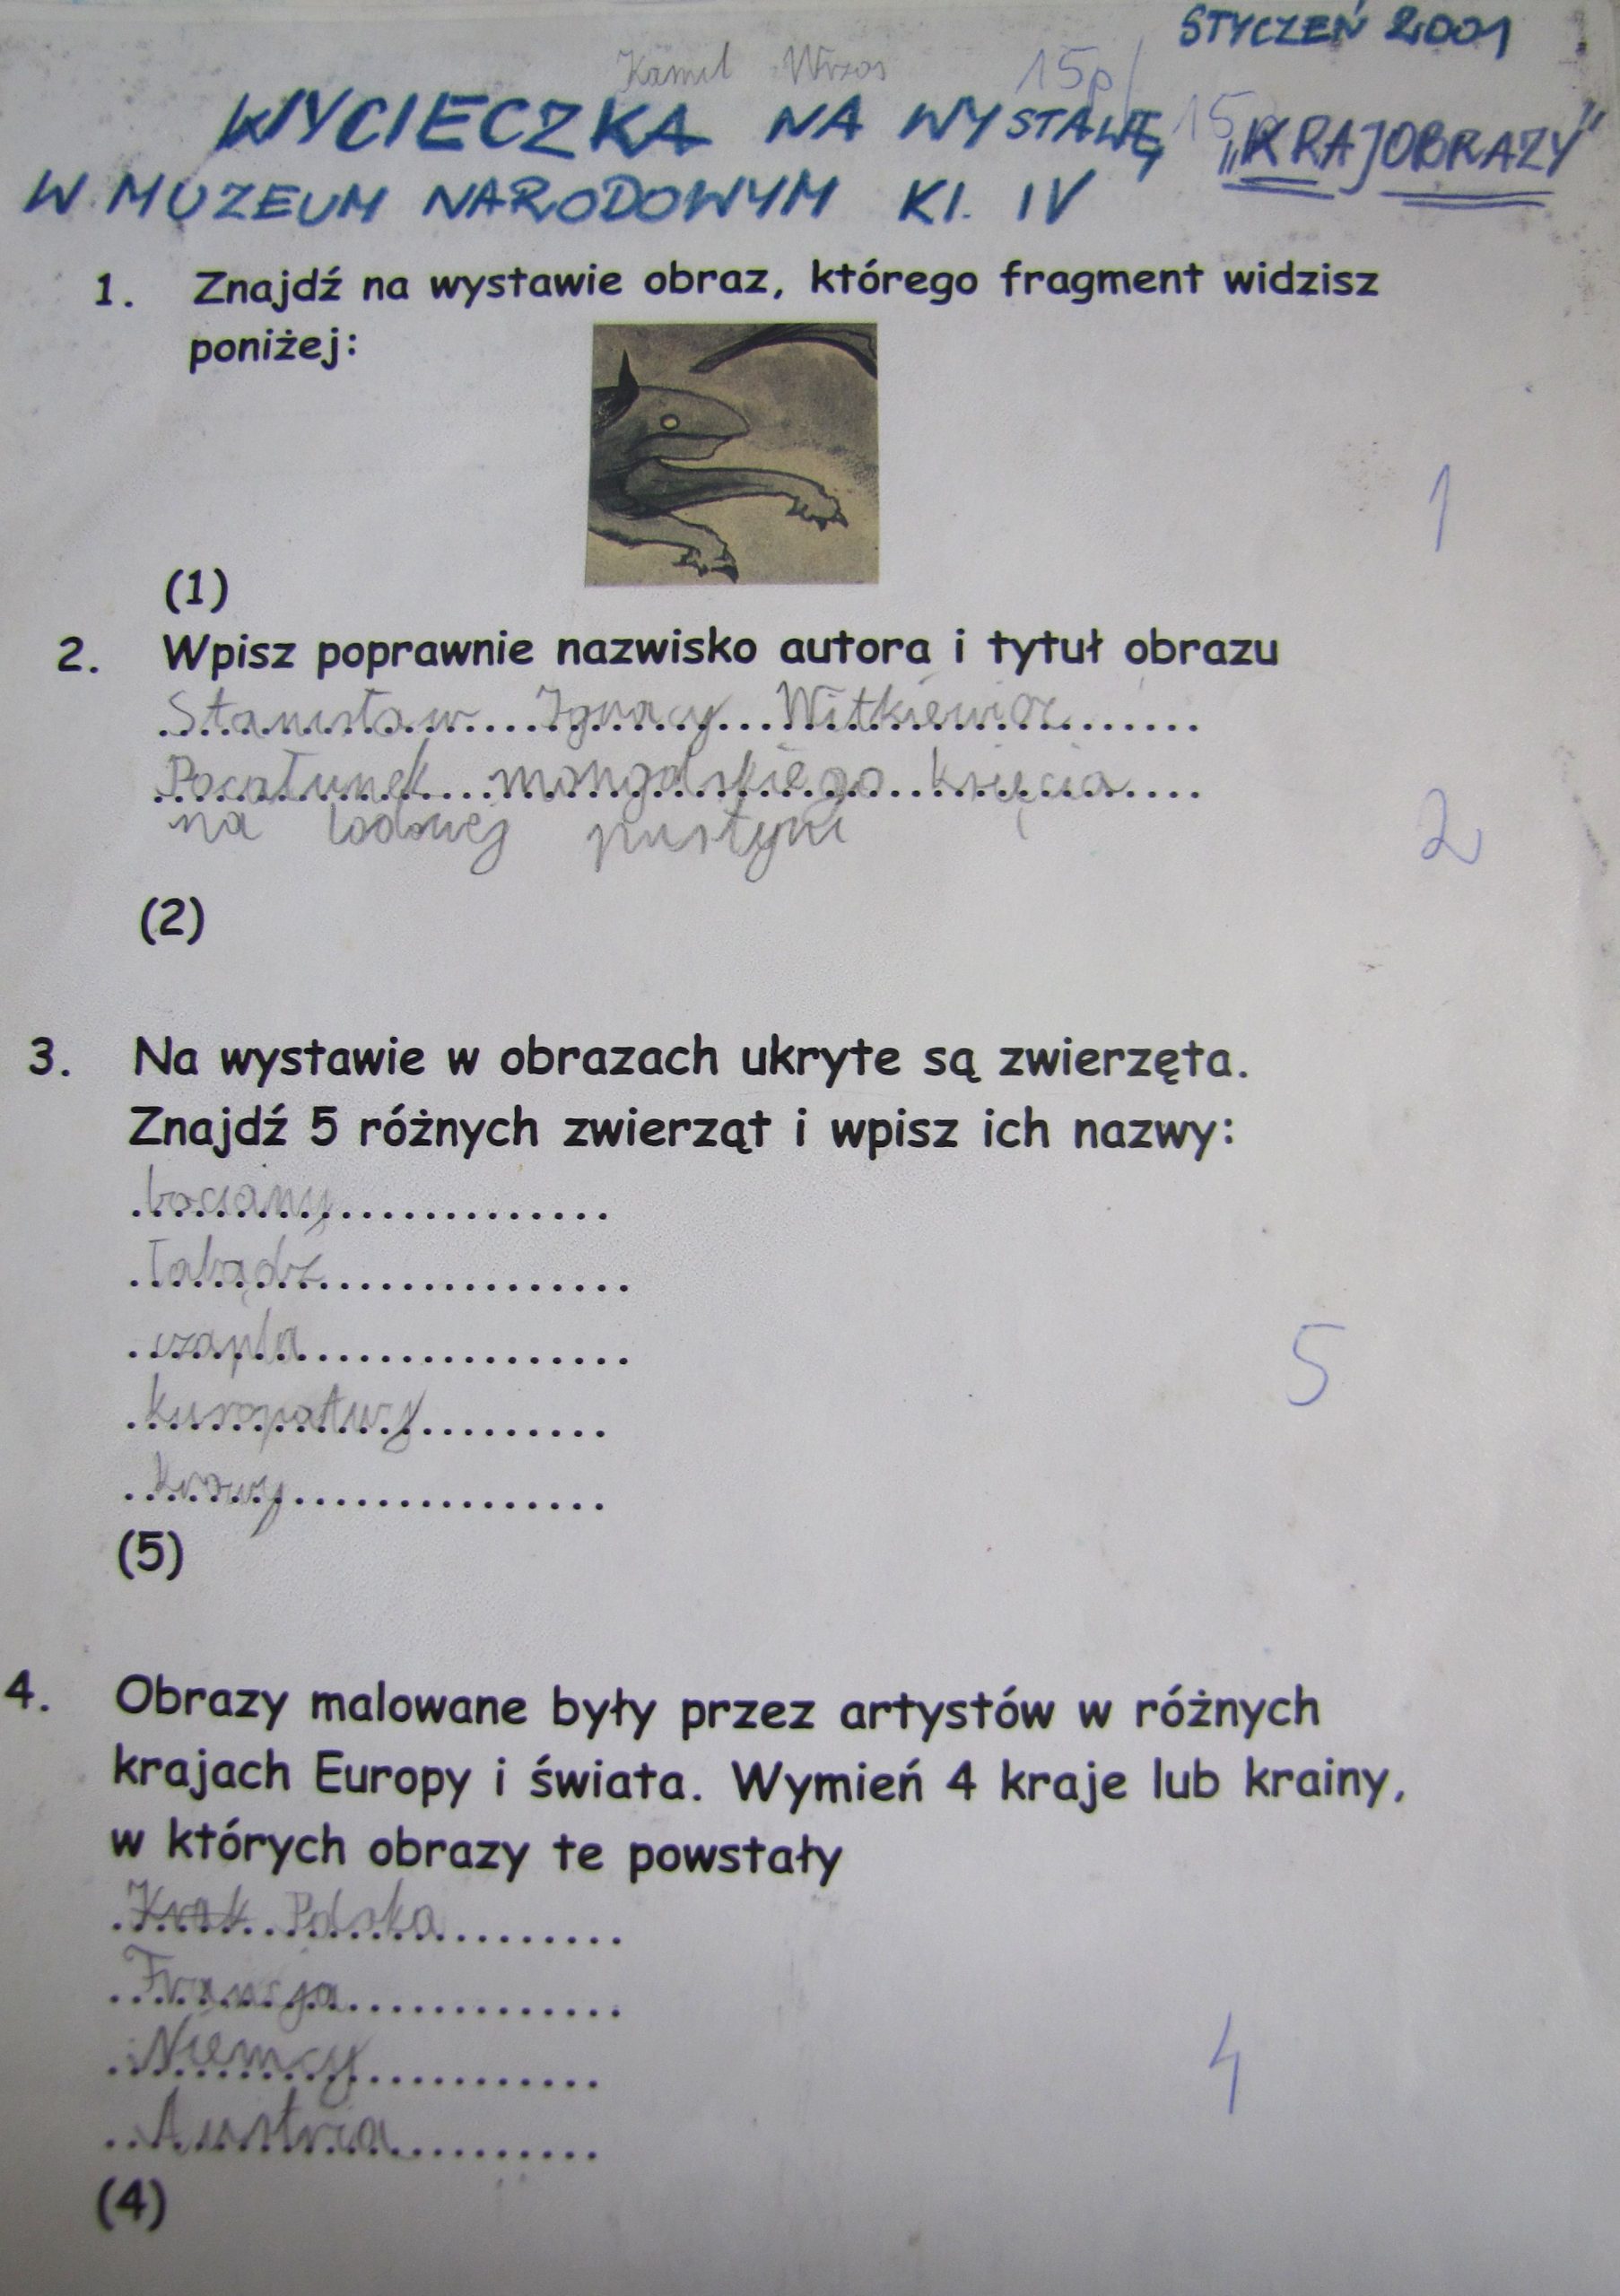 STYCZEŃ 2001
Kamil Wrzos 15p/15p
WYCIECZKA NA WYSTAWĘ „KRAJOBRAZY"
W MUZEUM NARODOWYM Kl. IV
1. Znajdź na wystawie obraz, którego fragment widzisz
poniżej:
1
(1)
2. Wpisz poprawnie nazwisko autora i tytuł obrazu
Stanisław Ignacy Witkiewicz
Pocałunek mongolskiego księcia
na lodowej pustyni
2
(2)
3. Na wystawie w obrazach ukryte są zwierzęta.
Znajdź 5 różnych zwierząt i wpisz ich nazwy:
bociany
łabądz
czapla
kuropatwy
krowy
5
(5)
4. Obrazy malowane były przez artystów w różnych
krajach Europy i świata. Wymień 4 kraje lub krainy,
w których obrazy te powstały
Krak Polska
Francja
Niemcy
Austria
4
(4)